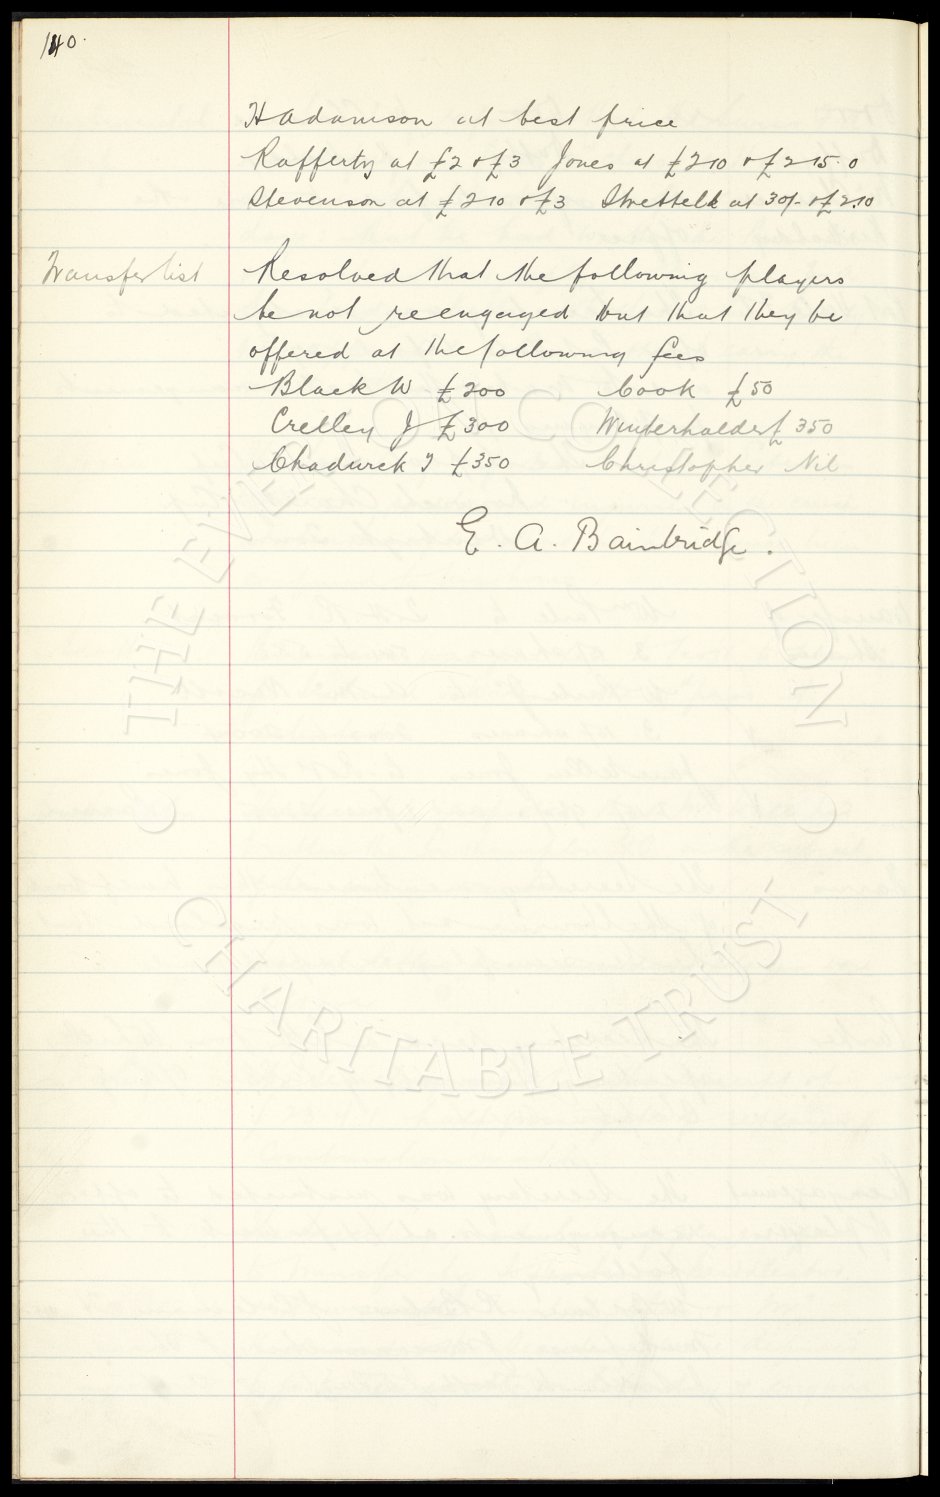 140.
H Adamson at best price
Rafferty at £2 & £3 Jones at £2 10 & £2 15. 0
Stevenson at £2 10 & £3 Strettell at 30/- & £2.10
Transfer list Resolved that the following players
be not reengaged but that they be
offered at the following fees
Black W £200 Cook £50
Crelley J £300 Winterhalder £350
Chadwick T £350 Christopher Nil
E. A. Bainbridge.
THE EVERTON COLLECTION
CHARITABLE TRUST